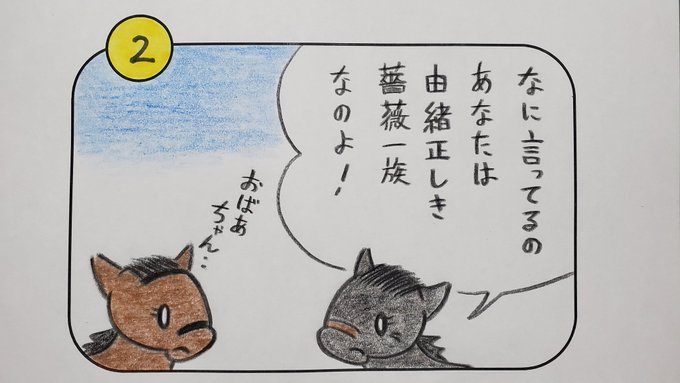 2
なに言ってるの
あなたは
由緒正しき
薔薇一族
なのよ!
おばあ
ちゃん‥